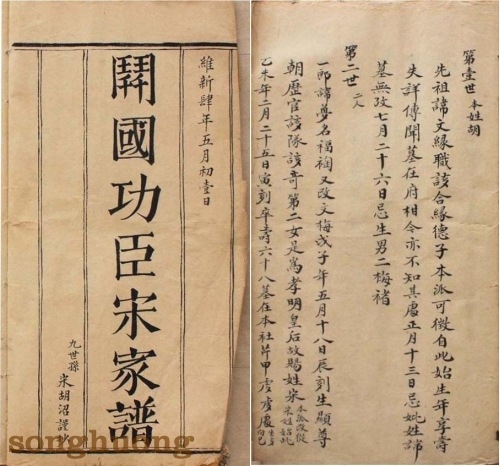 維新肆年五月初壹日
開國功臣宋家譜
九世孫
宋胡沼謹抄
songhhong
第壹世 本姓胡
先祖諱文緣職該合緣德子本派可徵自此始生年享壽
失詳傳聞墓在府相今亦不知其處正月十三日忌妣姓諱
墓無攷七月二十六日忌生男二梅褚
第二世 二人
一郎諱夢名福又改文梅戊子年五月十八日辰刻生顯尊
朝歷官該隊該奇第二女是爲孝明皇后故賜姓宋 本派改從宋姓
乙未年二月二十五日寅刻卒壽六十八墓在本社芹甲處